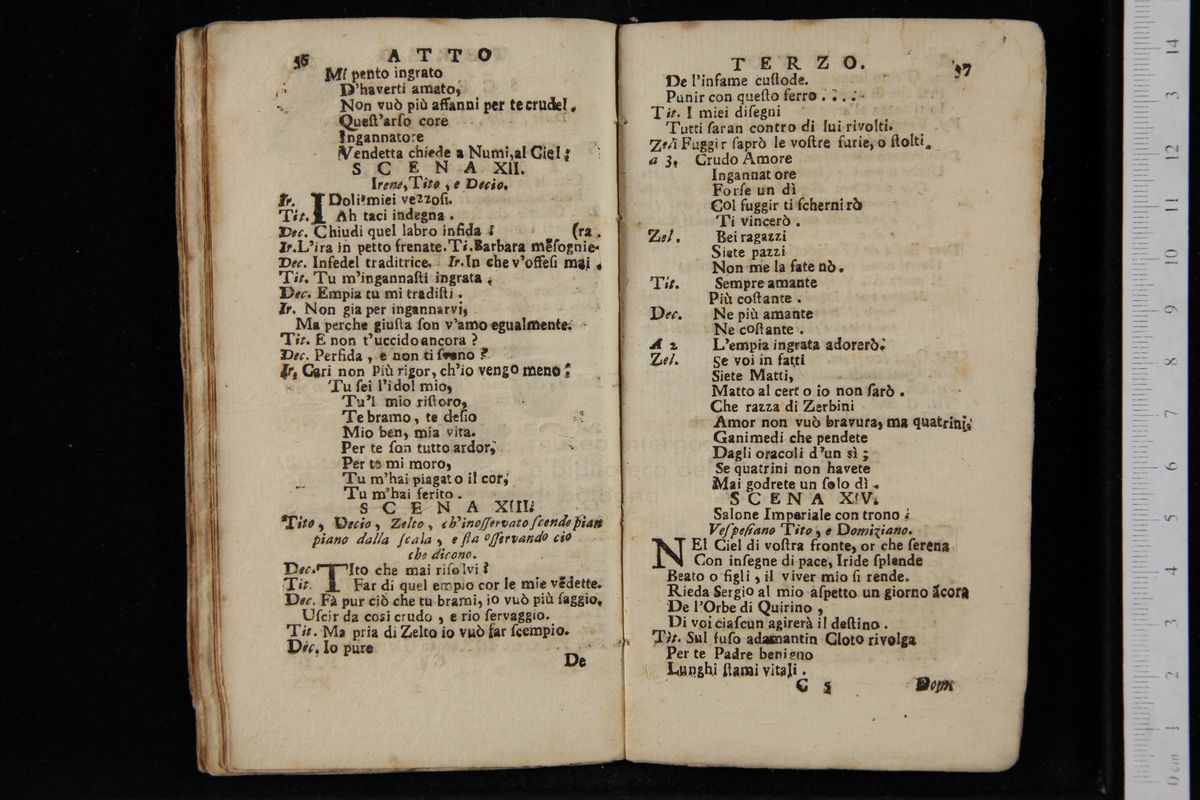 56 ATTO
Mi pento ingrato
D'haverti amato,
Non vuò più affanni per te crudel.
Quest'arso core
Ingannatore
Vendetta chiede a Numi, al Ciel;
SCENA XII.
Irene, Tito, e Decio.
Ir. IDoli miei vezzosi.
Tit. Ah taci indegna.
Dec. Chiudi quel labro infida ! (ra.
Ir. L'ira in petto frenate. Ti. Barbara mẽsognie-
Dec. Infedel traditrice. Ir. In che v'offesi mai.
Tit. Tu m'ingannasti ingrata,
Dec. Empia tu mi tradisti.
Ir. Non gia per ingannarvi,
Ma perche giusta son v'amo egualmente.
Tit. E non t'uccido ancora ?
Dec. Perfida, e non ti sveno ?
Ir. Cari non più rigor, ch'io vengo meno:
Tu sei l'idol mio,
Tu'l mio ristoro,
Te bramo, te desio
Mio ben, mia vita.
Per te son tutto ardor,
Per te mi moro,
Tu m'hai piagato il cor,
Tu m'hai ferito.
SCENA XIII.
Tito, Decio, Zelto, ch'inosservato scende pian
piano dalla scala, e sta osservando ciò
che dicono.
Dec. TIto che mai risolvi ?
Tit. Far di quel empio cor le mie vẽdette.
Dec. Fà pur ciò che tu brami, io vuò più saggio,
Uscir da cosi crudo, e rio servaggio.
Tit. Ma pria di Zelto io vuò far scempio.
Dec. Io pure
De
TERZO. 57
De l'infame custode.
Punir con questo ferro . . . .
Tit. I miei disegni
Tutti saran contro di lui rivolti.
Zel. Fuggir saprò le vostre furie, o stolti.
a 3. Crudo Amore
Ingannatore
Forse un dì
Col fuggir ti schernirò
Ti vincerò.
Zel. Bei ragazzi
Siete pazzi
Non me la fate nò.
Tit. Sempre amante
Più costante.
Dec. Ne più amante
Ne costante.
A 2 L'empia ingrata adorerò.
Zel. Se voi in fatti
Siete Matti,
Matto al certo io non sarò.
Che razza di Zerbini
Amor non vuò bravura, ma quatrini;
Ganimedi che pendete
Dagli oracoli d'un sì;
Se quatrini non havete
Mai godrete un solo dì.
SCENA XIV.
Salone Imperiale con trono.
Vespesiano Tito, e Domiziano.
NEl Ciel di vostra fronte, or che serena
Con insegne di pace, Iride splende
Beato o figli, il viver mio si rende.
Rieda Sergio al mio aspetto un giorno ãcora
De l'Orbe di Quirino,
Di voi ciascun agirerà il destino.
Tit. Sul fuso adamantin Cloto rivolga
Per te Padre benigno
Lunghi stami vitali.
C 5 Dopo